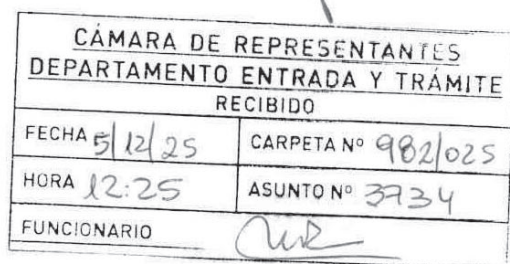 CÁMARA DE REPRESENTANTES
DEPARTAMENTO ENTRADA Y TRÁMITE
RECIBIDO
FECHA 5/12/25 CARPETA Nº 982/025
HORA 12:25 ASUNTO Nº 3734
FUNCIONARIO